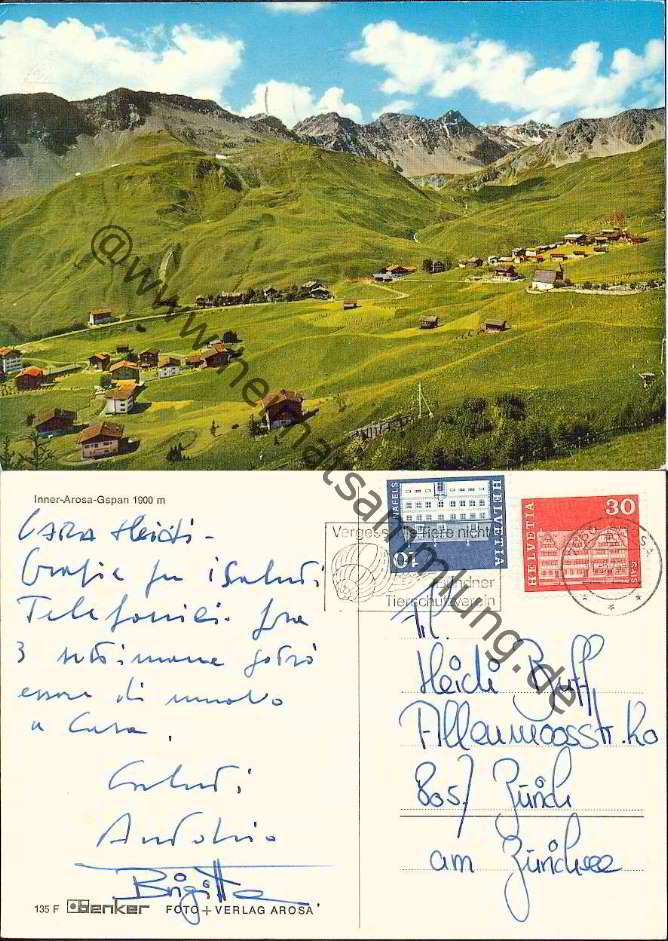 @www.heimatsammlung.de
Inner-Arosa-Gspan 1900 m
CARA Heidi -
Grazie per i Saluti
Telefonici. fra
3 settimane potrò
essere di nuovo
a Casa.
Saluti
Antonio
Brigitta
135 F denker FOTO + VERLAG AROSA
NÄFELS
HELVETIA
10
HELVETIA
30
Vergesst die Tiere nicht
Bündner
Tierschutzverein
Heidi
Allenmoosstr.
8057 Zürich
am Zürichsee